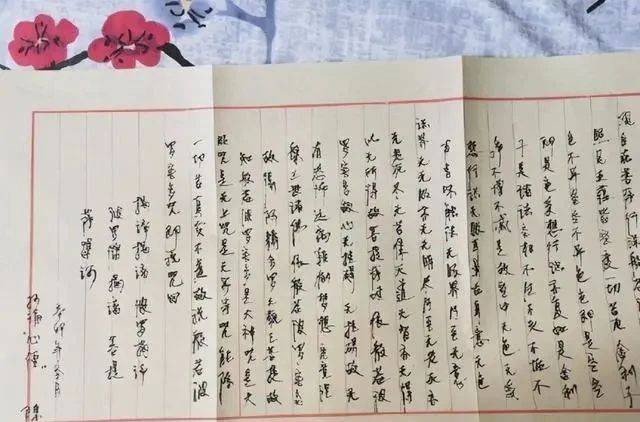 观自在菩萨行深般若
照见五蕴皆空度一切苦厄舍利子
色不异空空不异色色即是空空
即是色受想行识亦复如是舍利
子是诸法空相不生不灭不垢不
净不增不减是故空中无色无受
想行识无眼耳鼻舌身意无色
声香味触法无眼界乃至无意
识界无无明亦无无明尽乃至无老死亦
无老死尽无苦集灭道无智亦无得
以无所得故菩提萨埵依般若波
罗蜜多故心无挂碍无挂碍故无
有恐怖远离颠倒梦想究竟涅
槃三世诸佛依般若波罗蜜多
故得阿耨多罗三藐三菩提故
知般若波罗蜜多是大神咒是大
明咒是无上咒是无等等咒能除
一切苦真实不虚故说般若波
罗蜜多咒即说咒曰
揭谛揭谛 波罗揭谛
波罗僧揭谛 菩提
萨婆诃
辛卯年月
心经 陈